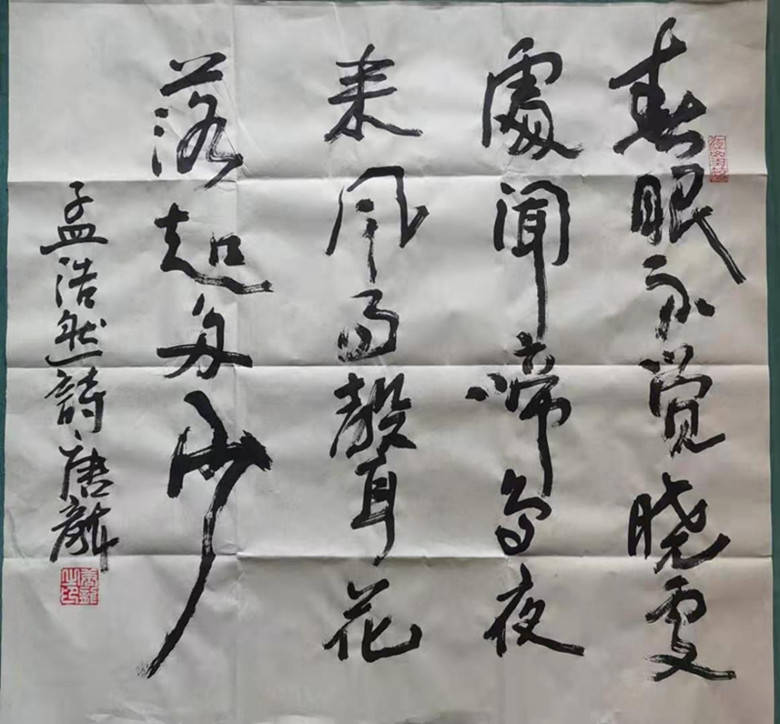 春眠不觉晓处
處闻啼鸟夜
来风雨聲花
落知多少
孟浩然詩唐龍